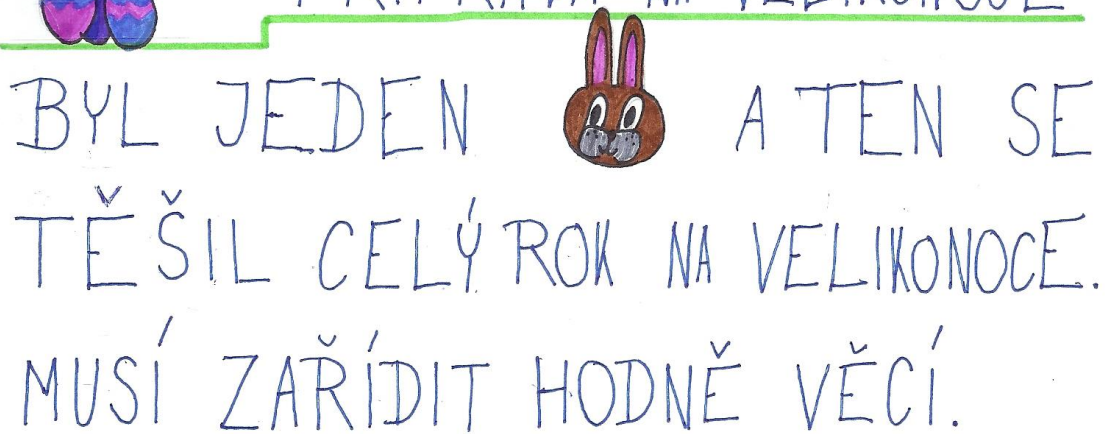 NA VELIKONOCE
BYL JEDEN A TEN SE
TĚŠIL CELÝ ROK NA VELIKONOCE.
MUSÍ ZAŘÍDIT HODNĚ VĚCÍ.